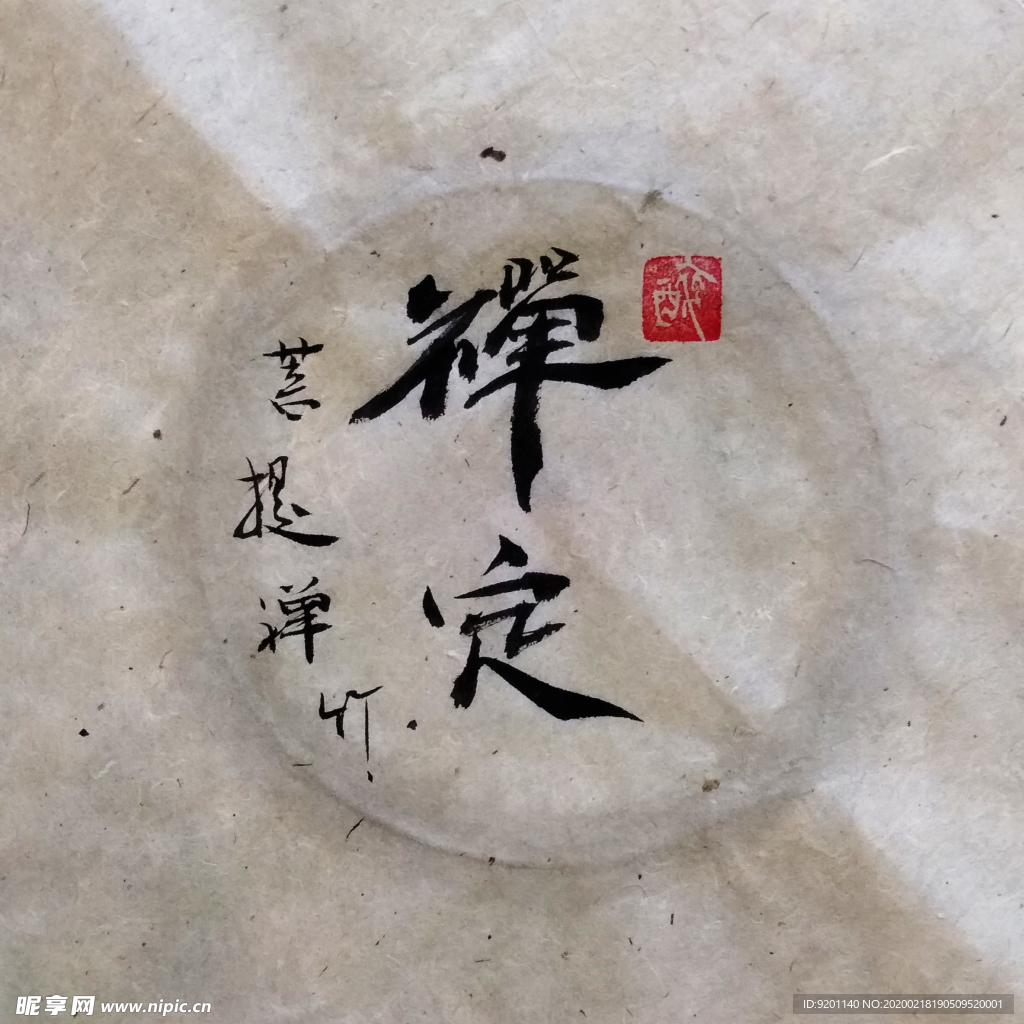 禪定
菩提禅竹
昵享网 www.nipic.cn
ID:9201140 NO:20200218190509520001